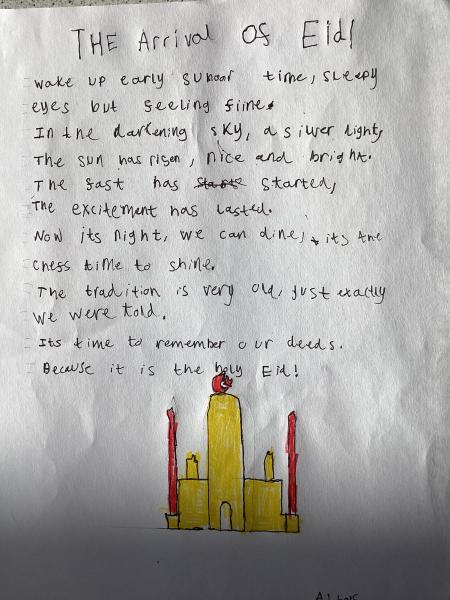 THE Arrival Of Eid!
wake up early suhoor time, sleepy
eyes but feeling fine.
In the darkening sky, a silver light,
The sun has risen, nice and bright.
The fast has started,
The excitement has lasted.
Now its night, we can dine, its the
chess time to shine.
The tradition is very old, just exactly
we were told.
Its time to remember our deeds.
Because it is the holy Eid!